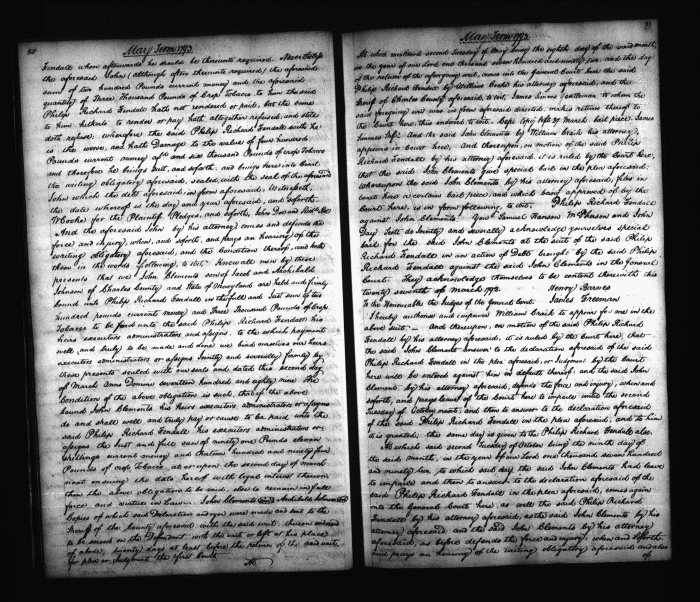 20
May Term 1792
Fendall when afterwards he should be thereunto required. Nevertheless
the aforesaid John (although after thereunto required) the aforesaid
sum of two hundred Pounds current money and the aforesaid
quantity of Three Thousand Pounds of Crop Tobacco to him the said
Philip Richard Fendall hath not rendered or paid, but the same
to him hitherto to render or pay hath altogether refused, and still
doth refuse. Wherefore the said Philip Richard Fendall saith he
is the worse, and hath Damage to the value of four hundred
Pounds current money and six thousand Pounds of crop Tobacco
and therefore he brings suit, and soforth. and brings here into Court
the writing obligatory aforesaid, sealed with the seal of the aforesaid
John which the debt aforesaid in form aforesaid Witnesseth,
the date whereof is the day and year aforesaid, and soforth.
Cooke for the Plaintiff. Pledges, and soforth, John Doe and Richd Roe
And the aforesaid John by his attorney comes and defends the
force and injury, when, and soforth, and prays an hearing of the
writing obligatory aforesaid, and the Condition thereof, and hath
them in the words following, to wit: Know all men by these
presents that we John Clements son of Jacob and Archibald
Johnson of Charles County and State of Maryland are held and firmly
bound unto Philip Richard Fendall in the full and Just sum of two
hundred pounds current money and Three Thousand Pounds of Crop
Tobacco to be paid unto the said Philip Richard Fendall his
heirs executors administrators or assigns, to the which payment
well and truly to be made and done we bind ourselves our heirs
executors administrators or assigns Jointly and severally firmly by
these presents sealed with our seals and dated this second day
of March Anno Domini seventeen hundred and eighty nine The
Condition of the above obligation is such, that if the above
bound John Clements his heirs executors administrators or assigns
do and shall well and truly pay or cause to be paid unto the
said Philip Richard Fendall his executors administrators or
assigns the Just and full sum of ninety one Pounds eleven
shillings current money and thirteen hundred and ninety four
Pounds of crop Tobacco, at or upon the second day of march
next ensuing the date hereof with legal interest thereon
then the above obligation to be void, else to remain in full
force and virtue in Law. John Clements (seal) Archibald Johnson (seal)
Copies of which said Declaration and were made and sent to the
Sheriff of the County aforesaid with the said writ, thereon endorsed
to be served on the Defendant with the writ or left at his place
of abode, twenty days at least before the return of the said writ,
for plea or Judgment the first Court.
21
May Term 1792
At which mentioned second Tuesday of May being the eighth day of the said month,
in the year of our Lord one thousand seven hundred and ninety two, and the day
of the return of the aforegoing writ, comes into the General Court here the said
Philip Richard Fendall by William Cooke his attorney aforesaid, and the
Sheriff of Charles County aforesaid, to wit, James Simms Gentleman, to whom the
said foregoing writ was in form aforesaid directed, makes return thereof to
the Court here thus endorsed, to wit. Cepi Copy left March bail piece. James
Simms Shff. And the said John Clements by William Craik his attorney,
appears in Court here, And thereupon, on motion of the said Philip
Richard Fendall by his attorney aforesaid, it is ruled by the Court here,
that the said John Clements give special bail in the plea aforesaid;
Whereupon the said John Clements by his attorney aforesaid, files in
Court here a certain bail piece, and which being approved of by the
Court here, is in form following, to wit. Philip Richard Fendall
against John Clements. You Samuel Hanson McPherson and John
Day Scott do Jointly and severally acknowledge yourselves special
bail for the said John Clements at the suit of the said Philip
Richard Fendall in an action of Debt brought by the said Philip
Richard Fendall against the said John Clements in the General
Court. They acknowledged themselves to be content therewith this
twenty seventh of March 1792. Henry Barnes
To the Honourable the Judges of the General Court. James Freeman
I hereby authorise and impower William Craik to appear for me in the
above suit. And thereupon, on motion of the said Philip Richard
Fendall by his attorney aforesaid, it is ruled by the Court here, that
the said John Clements answer to the declaration aforesaid of the said
Philip Richard Fendall in the plea aforesaid, or Judgment by the Court
here will be entered against him in default thereof. and the said John
Clements by his attorney aforesaid, defends the force and injury, when and
soforth, and prays leave of the Court here to imparle until the second
Tuesday of October next, and then to answer to the declaration aforesaid
of the said Philip Richard Fendall in the plea aforesaid, and to him
it is granted; the same day is given to the Philip Richard Fendall also.
At which said second Tuesday of October being the ninth day of
the said month, in the year of our Lord one thousand seven hundred
and ninety two, to which said day, the said John Clements had leave
to imparle and then to answer, to the declaration aforesaid of the
said Philip Richard Fendall in the plea aforesaid, comes again
into the General Court here, as well the said Philip Richard
Fendall by his attorney aforesaid as the said John Clements by his
attorney aforesaid. and the said John Clements by his attorney
aforesaid, as before defends the force and injury, when and soforth.
and prays an hearing of the writing obligatory aforesaid and also
of